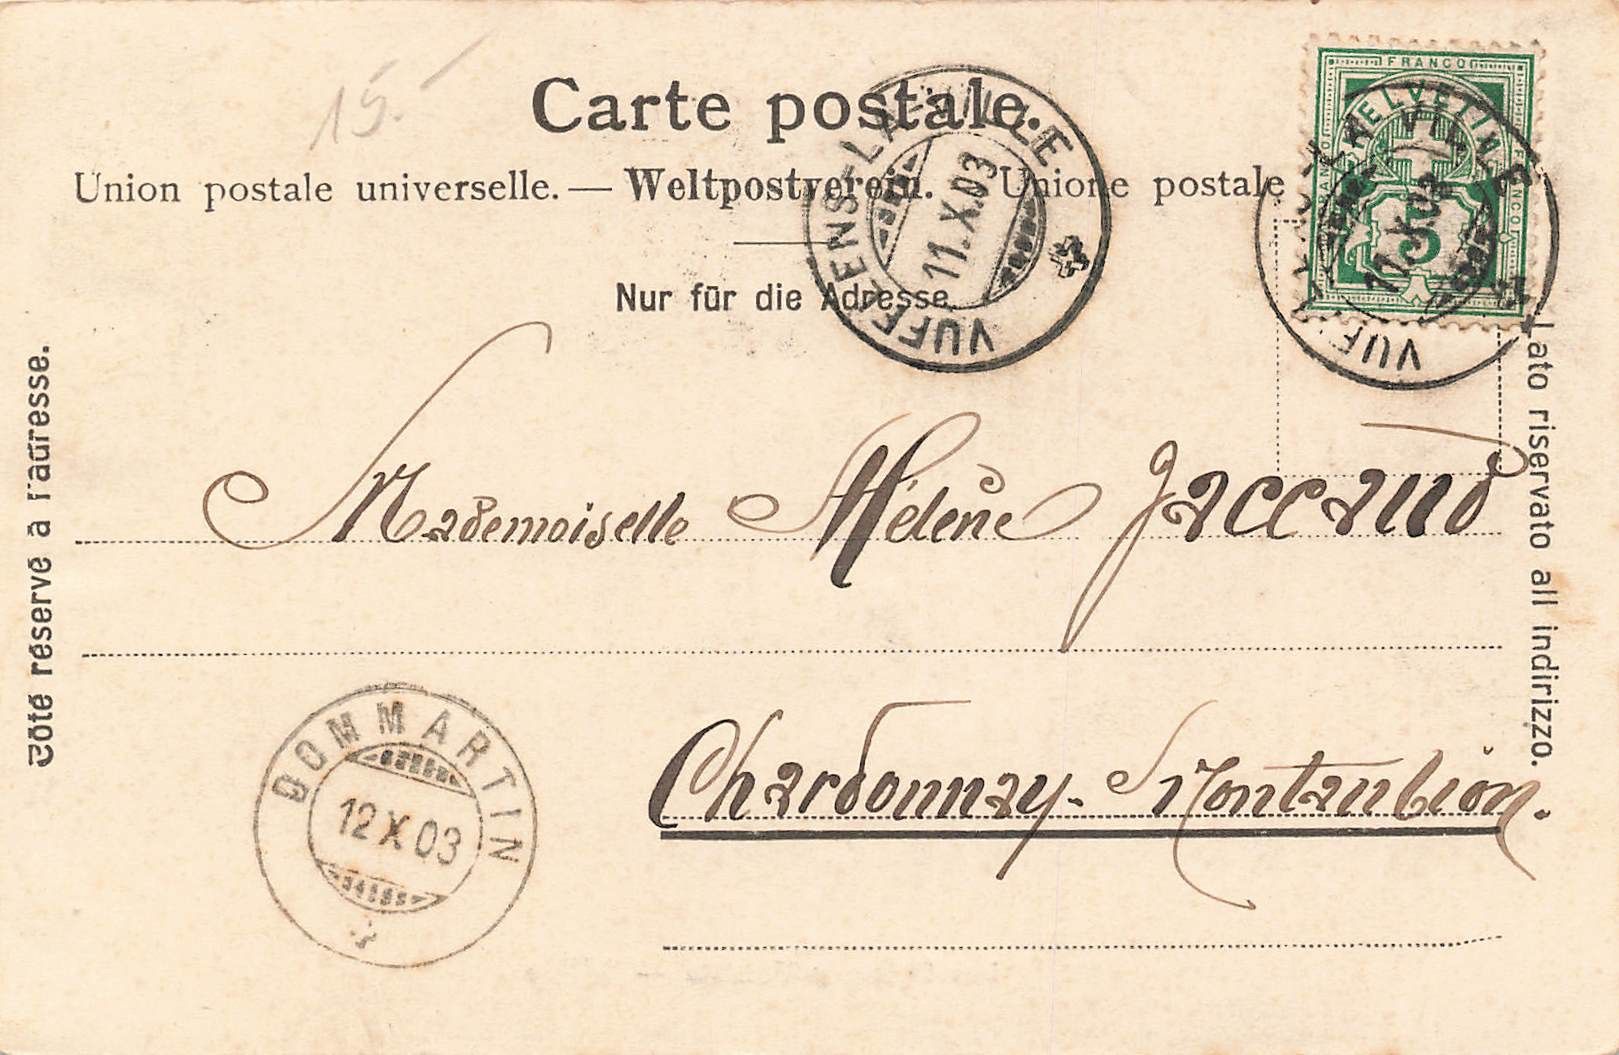 15.-
Carte postale.
Union postale universelle. — Weltpostverein. — Unione postale
Nur für die Adresse
Côté réservé à l'adresse.
Lato riservato all indirizzo.
FRANCO
HELVETIA
5
VUFFLENS-LA-VILLE
11.X.03
VUFFLENS-LA-VILLE
11.X.03
Mademoiselle Hélène Jaccaud
Chardonnay-Montaubion.
DOMMARTIN
12 X 03